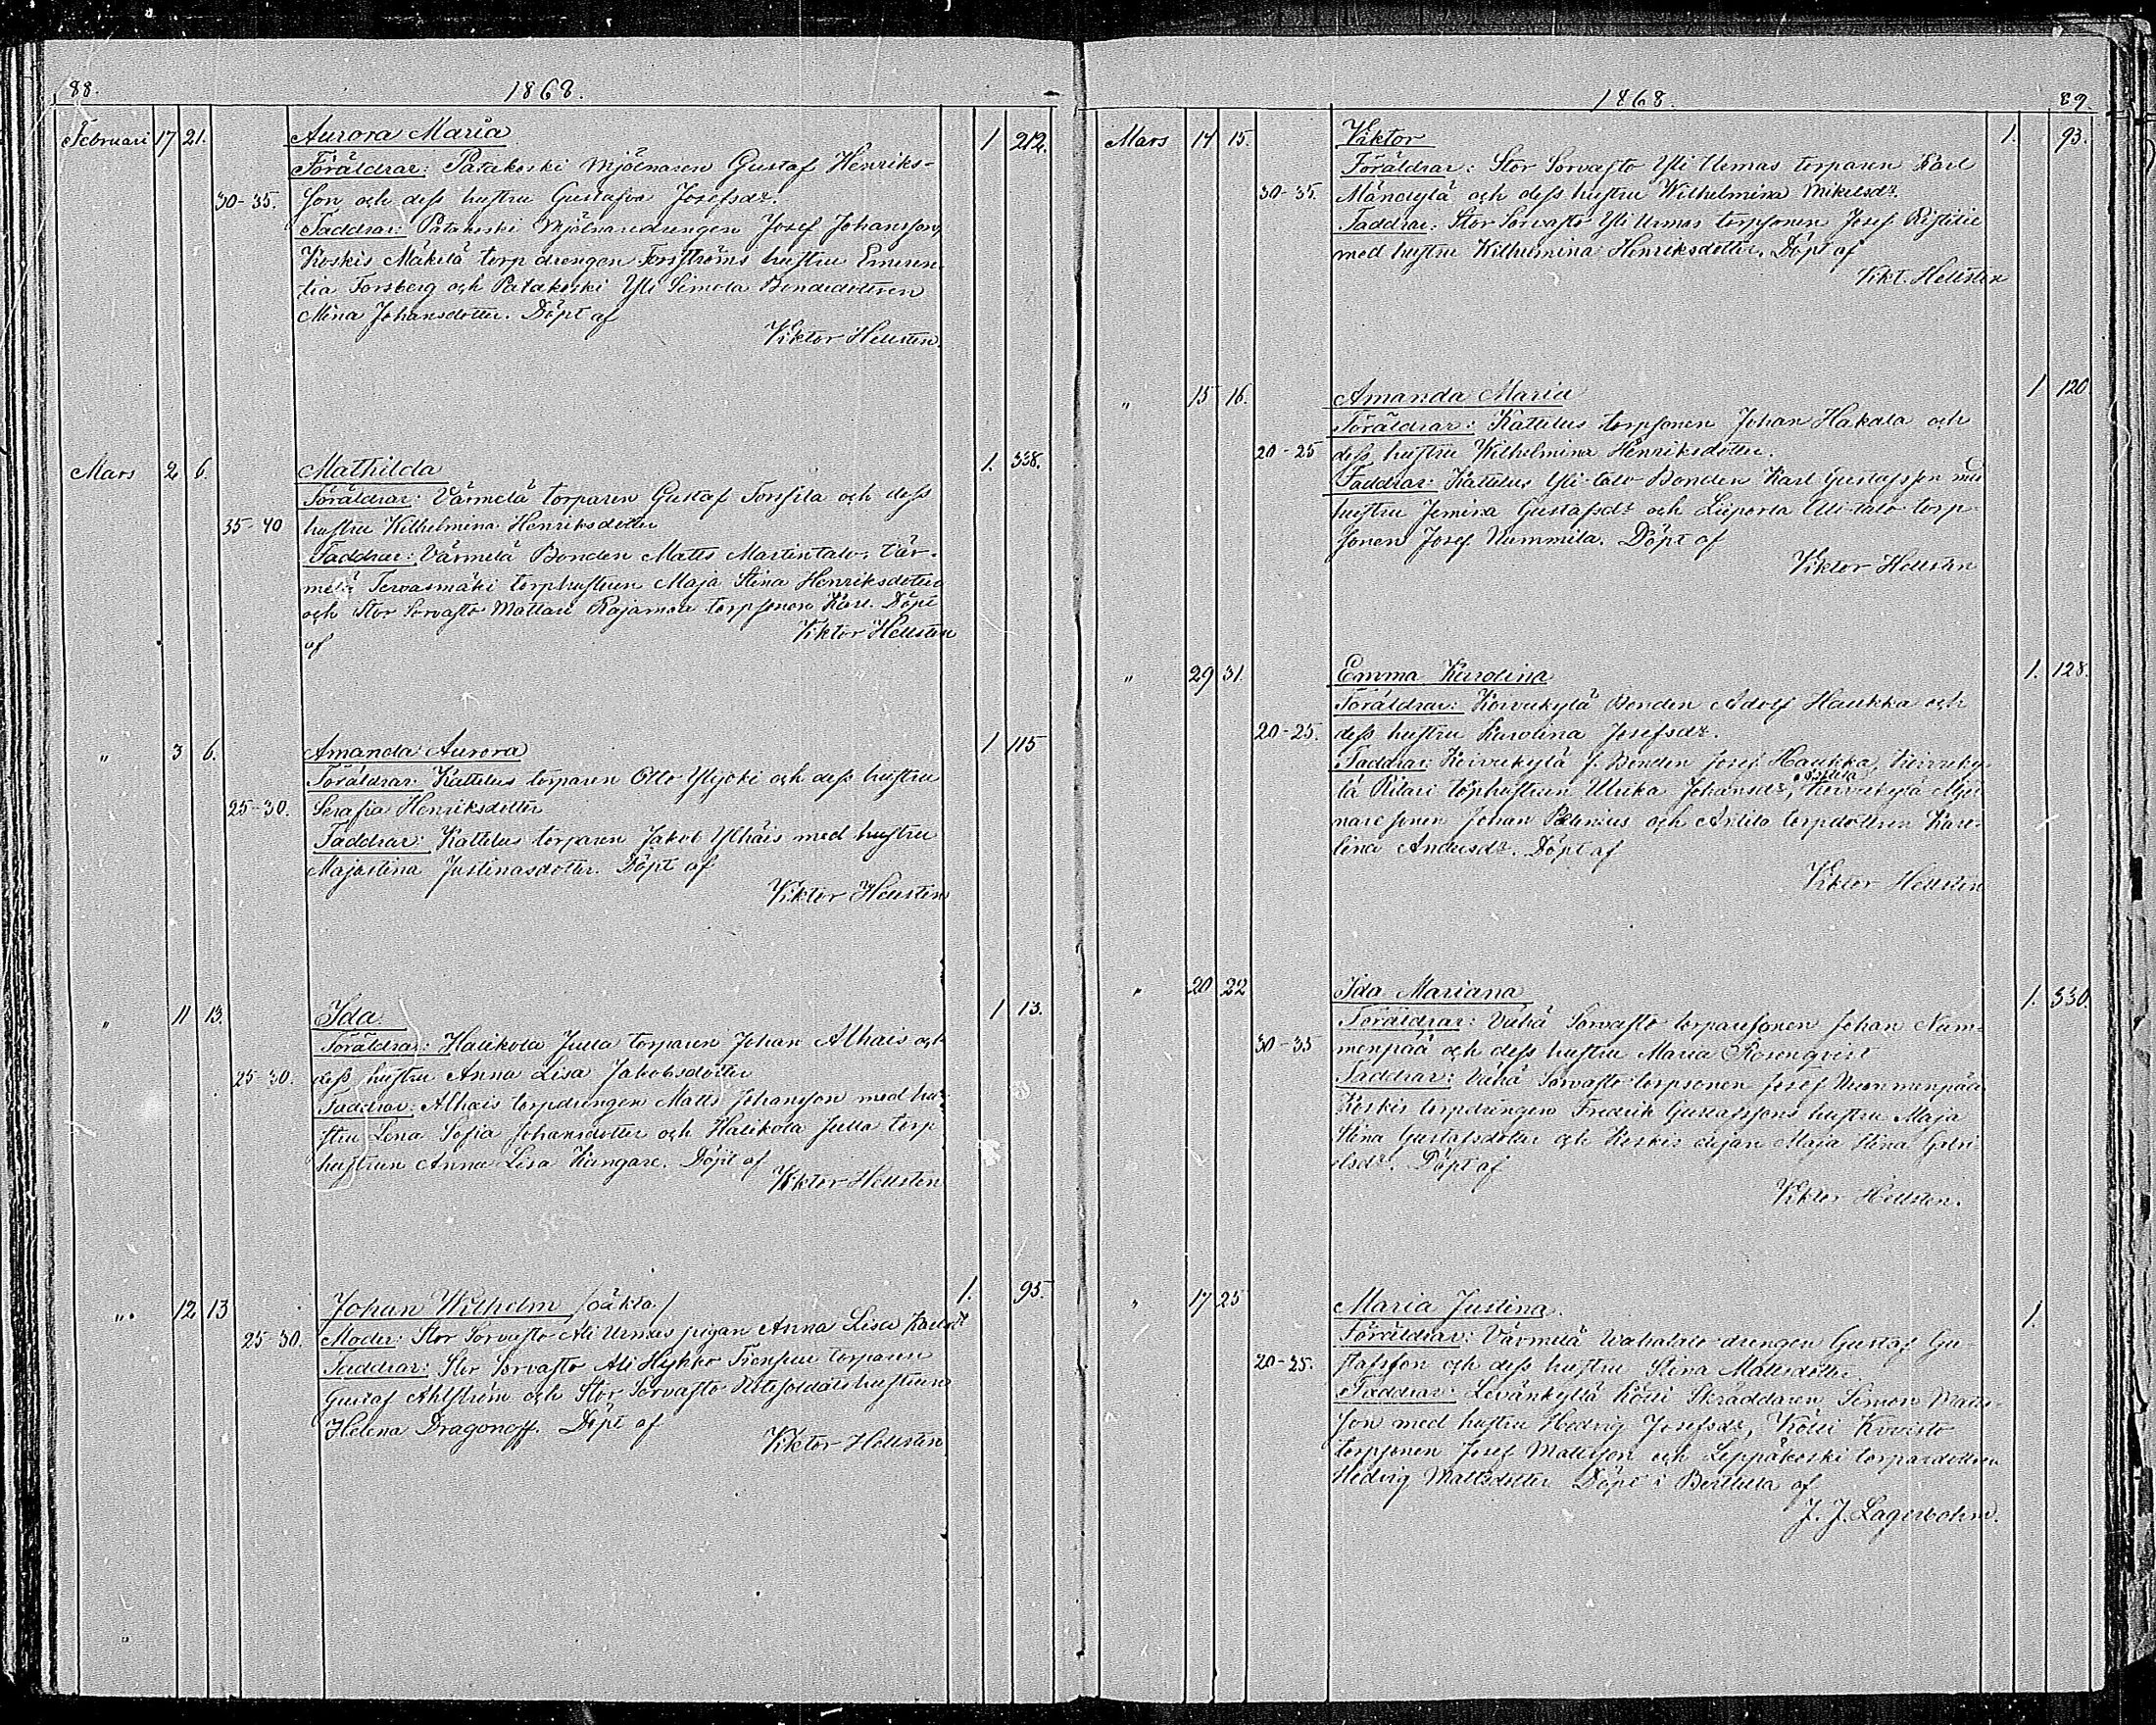 88.
1868.
Februari 17 21. Aurora Maria 1 212.
Föräldrar: Patakoski Mjölnaren Gustaf Henriks-
30-35. son och dess hustru Gustafva Josefsdr.
Faddrar: Patakoski Mjölnaredrengen Josef Johansson,
Koskis Mäkelä torp drengen Forsströms hustru Emeren-
tia Forsberg och Patakoski Yli Simola Bondedottren
Mina Johansdotter. Döpt af
Viktor Hellsten.
Mars 2 6. Mathilda 1. 338.
Föräldrar: Värmelä torparen Gustaf Torssila och dess
35-40 hustru Wilhelmina Henriksdotter
Faddrar: Värmelä Bonden Matts Martintalo, Vär-
melä Tervasmäki torphustrun Maja Stina Henriksdotter
och Stor Sorvasto Mattari Rajamaa torpsonen Karl. Döpt
af Viktor Hellsten
" 3 6. Amanda Aurora 1 115
Föräldrar: Kattelus torparen Otto Ylijoki och dess hustru
25-30. Serafia Henriksdotter
Faddrar: Kattelus torparen Jakob Ylhäis med hustru
Majastina Justinasdotter. Döpt af
Viktor Hellsten
" 11 13. Ida 1 13.
Föräldrar: Halikola Julla torparen Johan Alhais och
25-30. dess hustru Anna Lisa Jakobsdotter
Faddrar: Alhais torpdrengen Matts Johansson med hu-
stru Lena Sofia Johansdotter och Halikola Julla torp
hustrun Anna Lisa Kangare. Döpt af
Viktor Hellsten
". 12 13 Johan Wilhelm /oäkta/ 1. 95.
25-30. Moder: Stor Sorvasto Ali Urmas pigan Anna Lisa Karlsdr
Faddrar: Stor Sorvasto Ali Hyhko torparen
Gustaf Ahlström och Stor Sorvasto Rotesoldatshustrun
Helena Dragonoff. Döpt af
Viktor Hellsten
1868. 89.
Mars 14 15. Viktor 1. 93.
Föräldrar: Stor Sorvasto Yli Urmas torparen Karl
30-35. Mändylä och dess hustru Wilhelmina Mikelsdr.
Faddrar: Stor Sorvasto Yli Urmas torpsonen Josef
med hustru Wilhelmina Henriksdotter. Döpt af
Vikt. Hellsten
" 15 16. Amanda Maria 1 120.
Föräldrar: Kattelus torpsonen Johan Hakala och
20-25 dess hustru Wilhelmina Henriksdotter.
Faddrar: Kattelus Yli-talo Bonden Karl Gustafsson med
hustru Jemina Gustafsdr och Liiporla Ali-talo torp
sonen Josef Nummila. Döpt af
Viktor Hellsten
" 29 31. Emma Karolina 1. 128.
Föräldrar: Koivukylä Bonden Adolf Haukka och
20-25. dess hustru Karolina Josefsdr.
Faddrar: Koivukylä f. Bonden Josef Haukka, Koivuky-
lä Pilari torphustrun Ulrika Johansdr, Koivukylä Mjöl
naresonen Johan och Antila torpdottren Karo-
lina Andersdr. Döpt af
Viktor Hellsten
" 20 22 Ida Mariana 1. 330.
Föräldrar: Vähä Sorvasto torparesonen Johan Num-
30-35 menpää och dess hustru Maria Rosenqvist
Faddrar: Vähä Sorvasto torpsonen Josef Nummenpää
Koskis torpdrengen Fredrik Gustafssons hustru Maja
Stina Gustafsdotter och Koskis dejan Maja Stina Gabri-
elsdr. Döpt af
Viktor Hellsten.
" 17 25 Maria Justina. 1.
Föräldrar: Värmelä drengen Gustaf Gu
20-25. stafsson och dess hustru Stina Mattsdotter.
Faddrar: Levänkyllä Kölli Skräddaren Simon Matts-
son med hustru Hedvig Josefsdr, Kölli Koivisto
torpsonen Josef Mattsson och Leppäkoski torpardottren
Hedvig Mattsdotter Döpt i Berttula af
J. J. Lagerbohm.